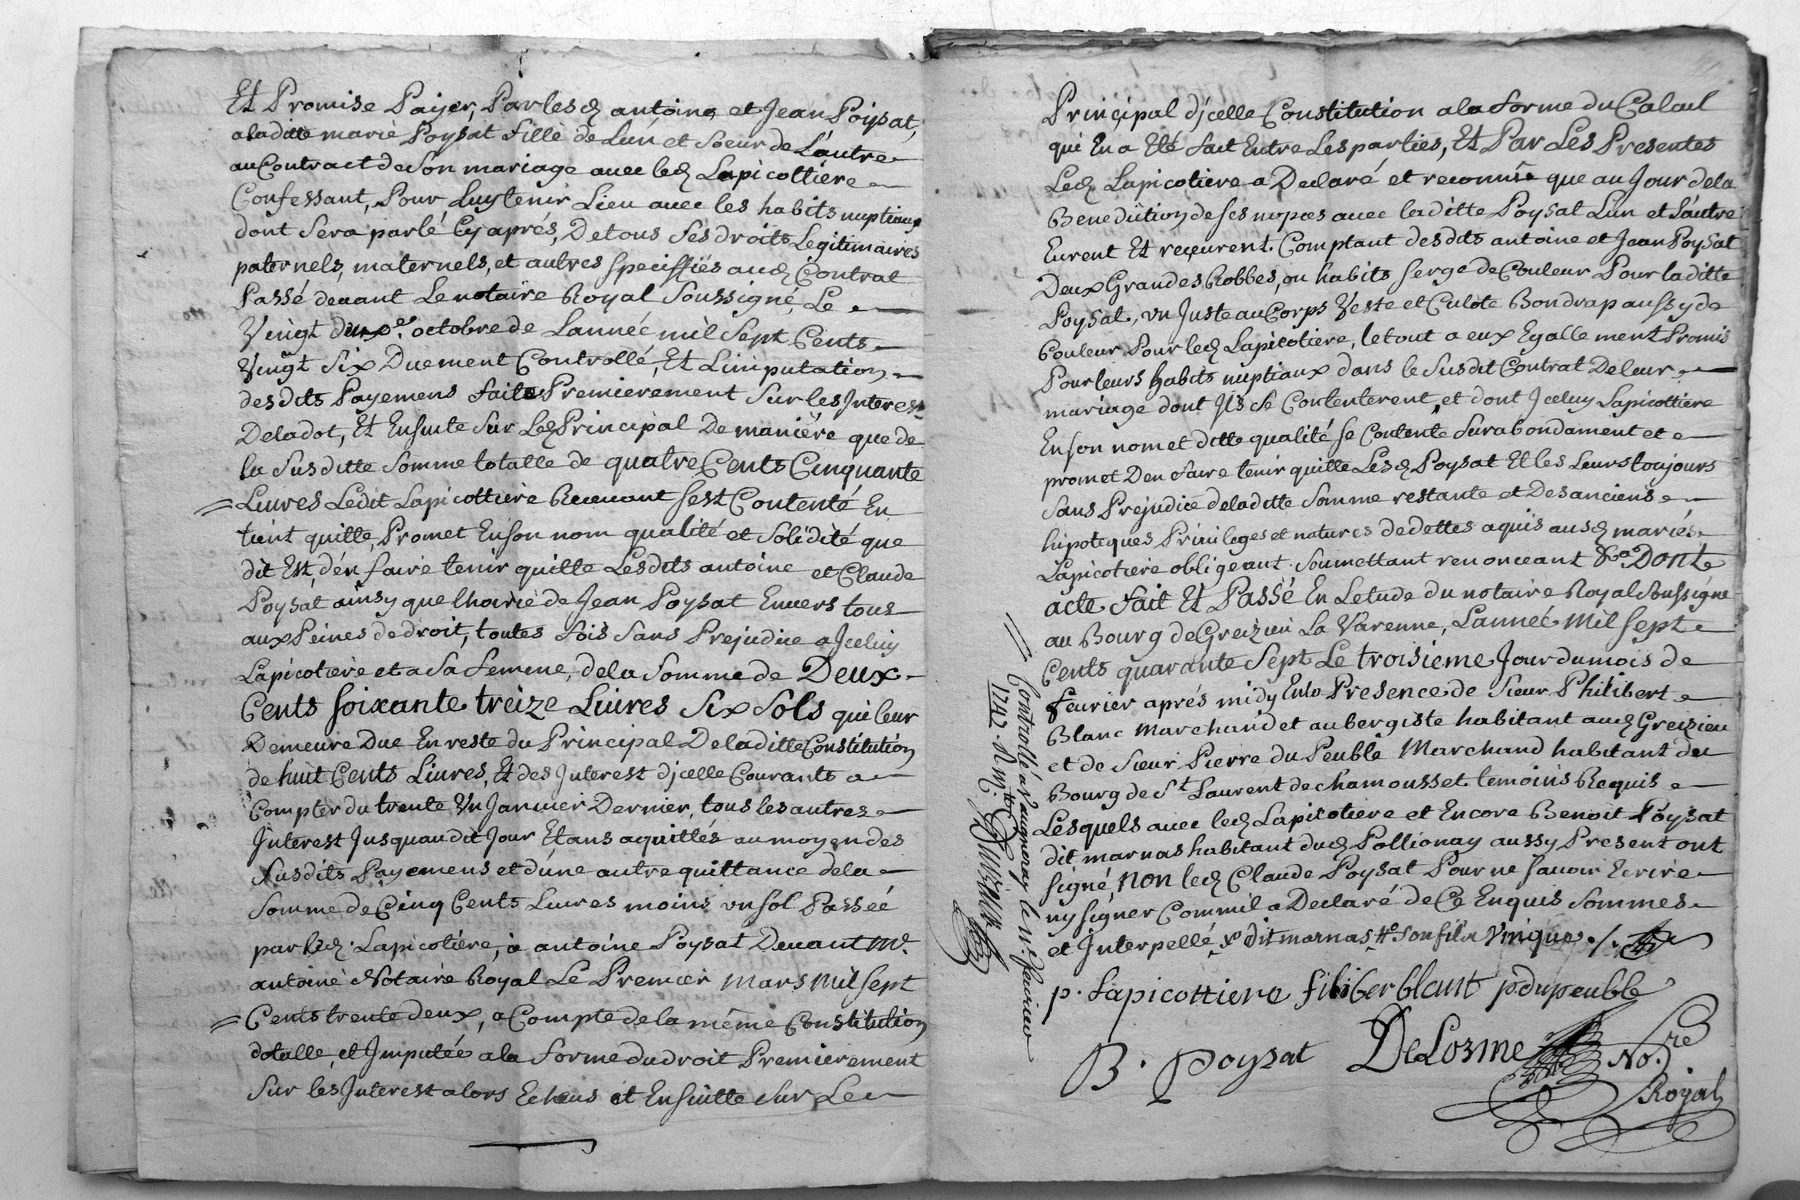 Et Promise Paijer, Par lesd antoine et Jean Poysat,
a laditte marie Poysat fille de Lun et Soeur de Lautre
au Contract de Son mariage avec led Lapicottiere
Confessant, Pour Luy tenir Lieu avec les habits nuptiaux
dont Sera parlé Cy aprés, De tous Ses droits Legitimaires
paternels, maternels, et autres Speciffiës aud Contrat
Passé devant Le notaire Royal Soussigné, Le
Vingt octobre de Lannéé mil Sept Cents
Vingt Six Duement Controllé, Et Limputation
desdits Payemens faite Premierement Sur les Interes
De la dot, Et Ensuite Sur Led Principal De maniére que de
la Susditte Somme totalle de quatre Cents Cinquante
Livres Ledit Lapicottiere Recevant Sest Contenté En
tient quitte, Promet En Son nom qualité et Solidité que
dit Est, dén faire tenir quitte Lesdits antoine et Claude
Poysat ainsy que lhoirie de Jean Poysat Envers tous
aux Peines de droit, toutes fois Sans Prejudice a Jceluy
Lapicotiere et a Sa femme, de la Somme de Deux
Cents Soixante treize Livres Six Sols qui leur
Demeure Due En reste du Principal De laditte Constitution
de huit Cents Livres, Et des Interest djcelle Courants a
Compter du trente Un Janvier Dernier, tous les autres
Interest Jusquaudit Jour Etans aquittés au moyen des
Susdits Payemens et dúne autre quittance de la
Somme de Cinq Cents Livres moins un Sol Passéé
par led Lapicotiere, a antoine Poysat Devant Me
antoine Notaire Royal Le Premier Mars Mil Sept
Cents trente deux, a Compte de la même Constitution
dotalle, et Jmputée a la forme du droit Premierement
Sur les Interest alors Echeus et Ensuitte Sur Le
Principal djcelle Constitution a la forme du Calcul
qui En a Eté fait Entre Les parties, Et Par Les Presentes
Led Lapicotiere a Declaré et reconnu que au Jour de la
Benediction de Ses nopces avec laditte Poysat Lun et Lautre
Eurent Et reçeurent Comptant desdits antoine et Jean Poysat
Deux Grandes Robbes, ou habits Serge de Couleur Pour laditte
Poysat, un Juste au Corps Veste et Culote Bon drap aussy de
Couleur Pour led Lapicotiere, le tout a eux Egallement Promis
Pour leurs habits nuptiaux dans le Susdit Contrat De leur
mariage dont Jls Se Contenterent, et dont Jceluy Lapicottiere
En Son nom et ditte qualité Se Contente Surabondament et
promet Den faire tenir quitte Lesd Poysat Et les Leurs toujours
Sans Prejudice de laditte Somme restante et Des anciens
hipoteques Privileges et natures de dottes aquis ausd mariés
Lapicotiere obligeant Soumettant renonceant &ca Dont
acte fait Et Passé En Letude du notaire Royal Soussigné
au Bourg de Greizieu La Varenne, Lannéé Mil Sept
Cents quarante Sept Le troisieme Jour du mois de
fevrier aprés midy En la Presence de Sieur Philibert
Blanc Marchand et aubergiste habitant aud Greizieu
et de Sieur Pierre du Peublé Marchand habitant du
Bourg de St Laurent de chamousset temoins Requis
Lesquels avec led Lapicotiere et Encore Benoit Poysat
dit marnas habitant dud Pollionay aussy Present ont
signé, non led Claude Poysat Pour ne Savoir Ecrire
ny Signer Comm'il a Declaré de Ce Enquis Sommes
et Interpellé, dit marnas Son fils
p. Lapicottiere filiber blant p dupeuble
B. Poysat DeLorme No.re
Royal
Controllé a Vaugneray le fevrier
1747.